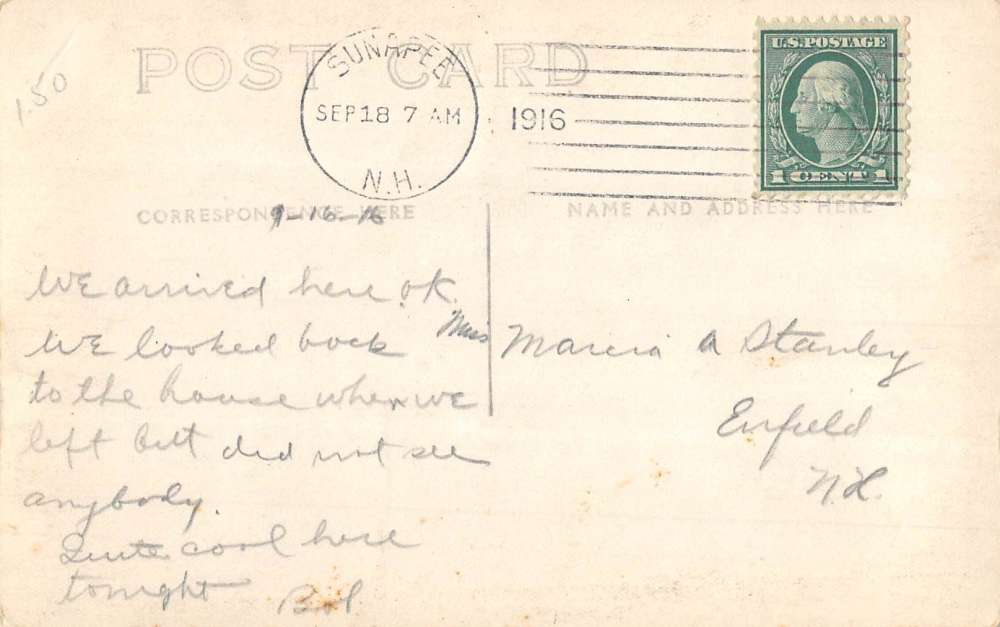 1.50
POST CARD
SUNAPEE
SEP 18 7 AM
N.H.
1916
U.S. POSTAGE
1 CENT 1
CORRESPONDENCE HERE
NAME AND ADDRESS HERE
9-16-16
We arrived here ok.
We looked back
to the house when we
left but did not see
anybody.
Quite cool here
tonight
Miss Marcia A Stanley
Enfield
N.H.